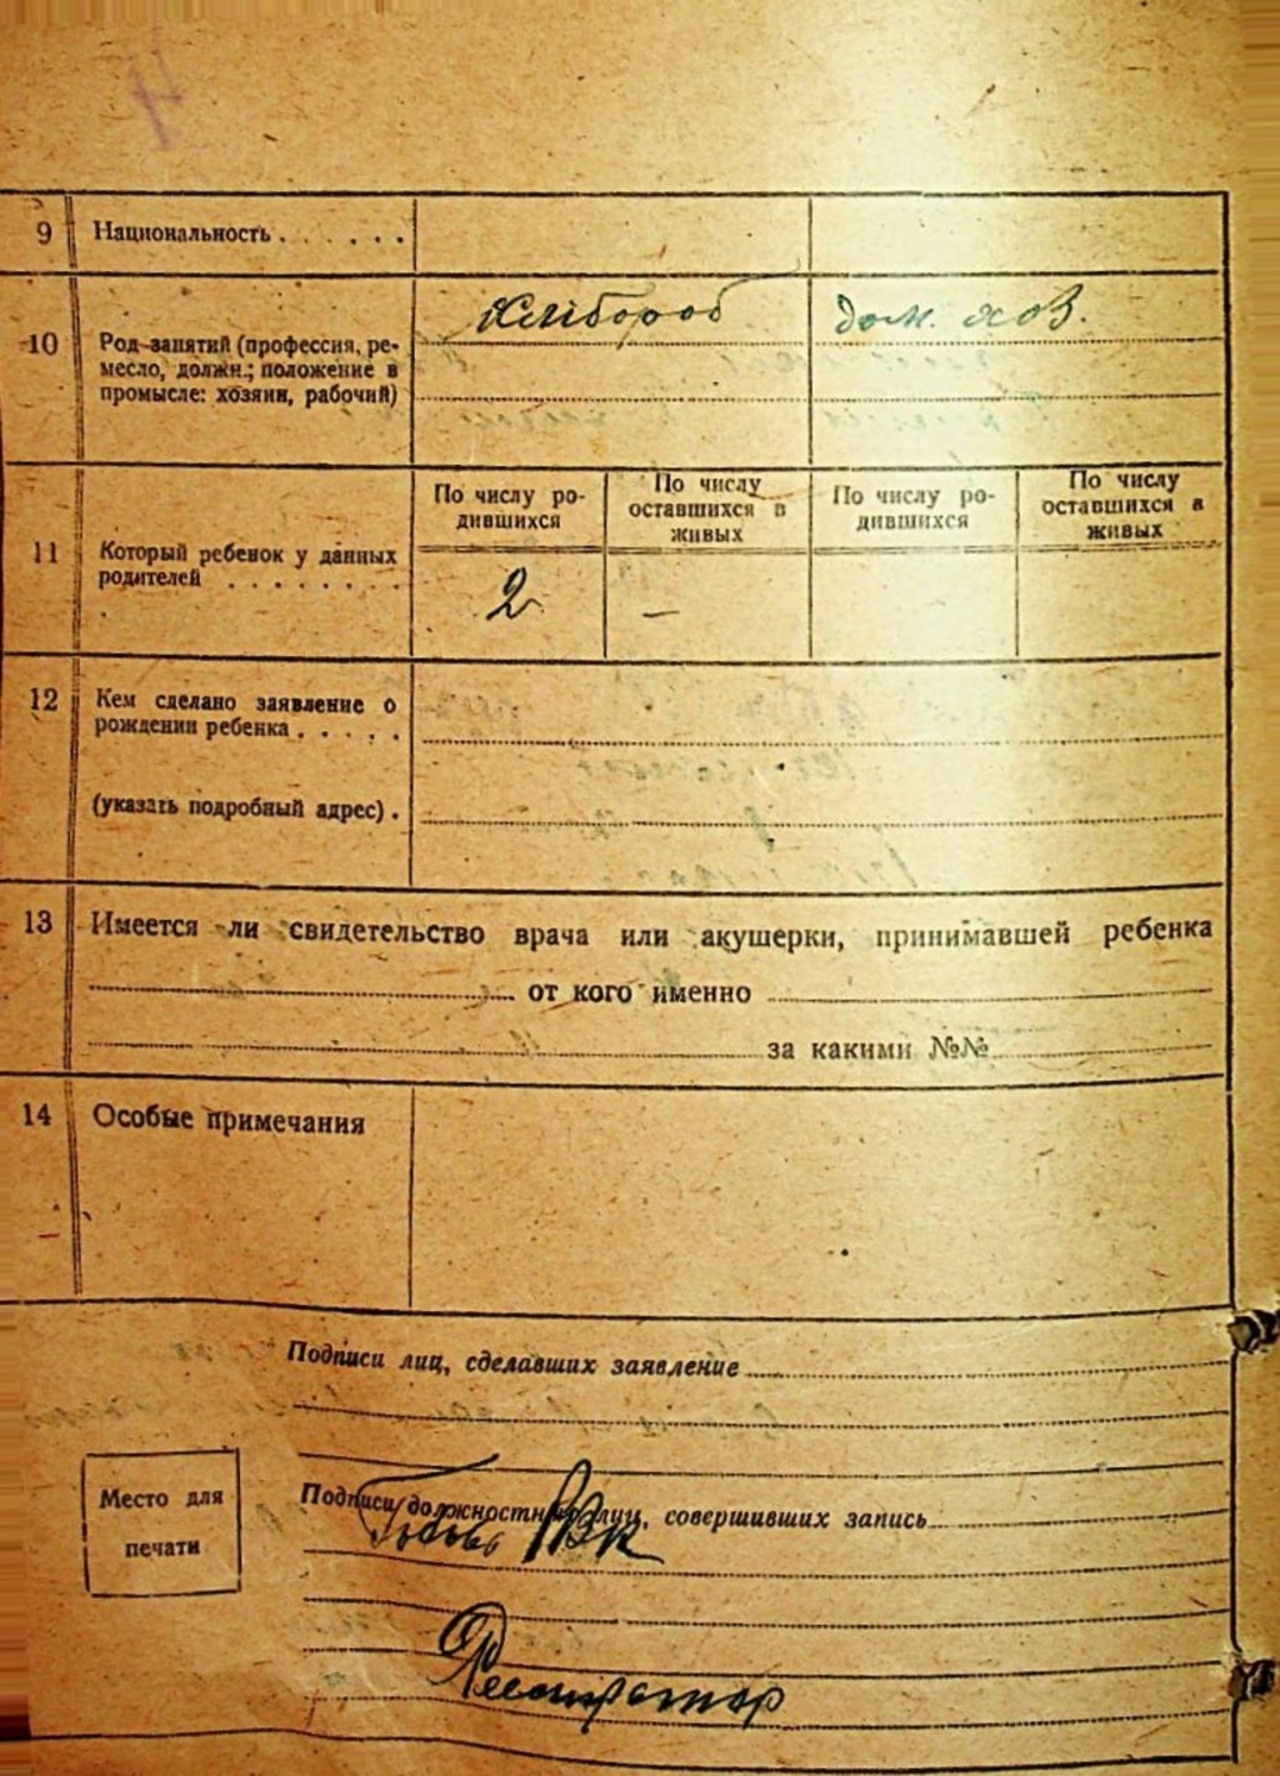 4
9 Национальность . . . . . .
Хлібороб дом. хоз.
10 Род занятий (профессия, ре-
месло, должн.; положение в
промысле: хозяин, рабочий)
По числу ро-
дившихся
По числу
оставшихся в
живых
По числу ро-
дившихся
По числу
оставшихся в
живых
11 Который ребенок у данных
родителей . . . . . . . .
2 —
12 Кем сделано заявление о
рождении ребенка . . . . .
(указать подробный адрес) .
13 Имеется ли свидетельство врача или акушерки, принимавшей ребенка
от кого именно
за какими №№
14 Особые примечания
Подписи лиц, сделавших заявление
Место для
печати
Подписи должностных лиц, совершивших запись
Голова РВК
Реєстратор